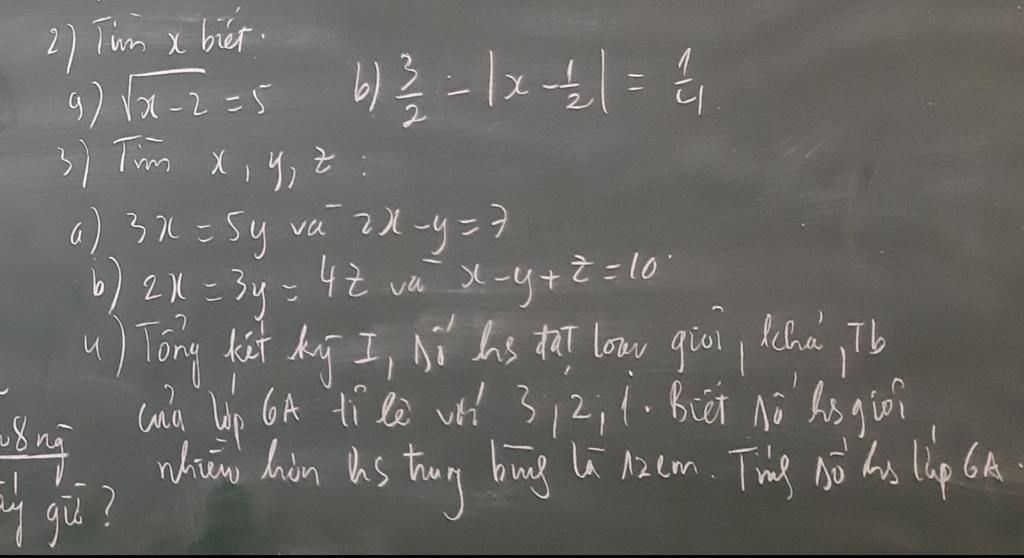 2) Tìm x biết.
a) √(x-2) = 5 b) 3/2 - |x - 1/2| = 1/4
3) Tìm x, y, z :
a) 3x = 5y và 2x - y = 7
b) 2x = 3y = 4z và x - y + z = 10
4) Tổng kết kỳ I, số hs đạt loại giỏi, khá, Tb
của lớp 6A tỉ lệ với 3; 2; 1. Biết số hs giỏi
nhiều hơn hs trung bình là 12em. Tính số hs lớp 6A.
8 ng
giờ?